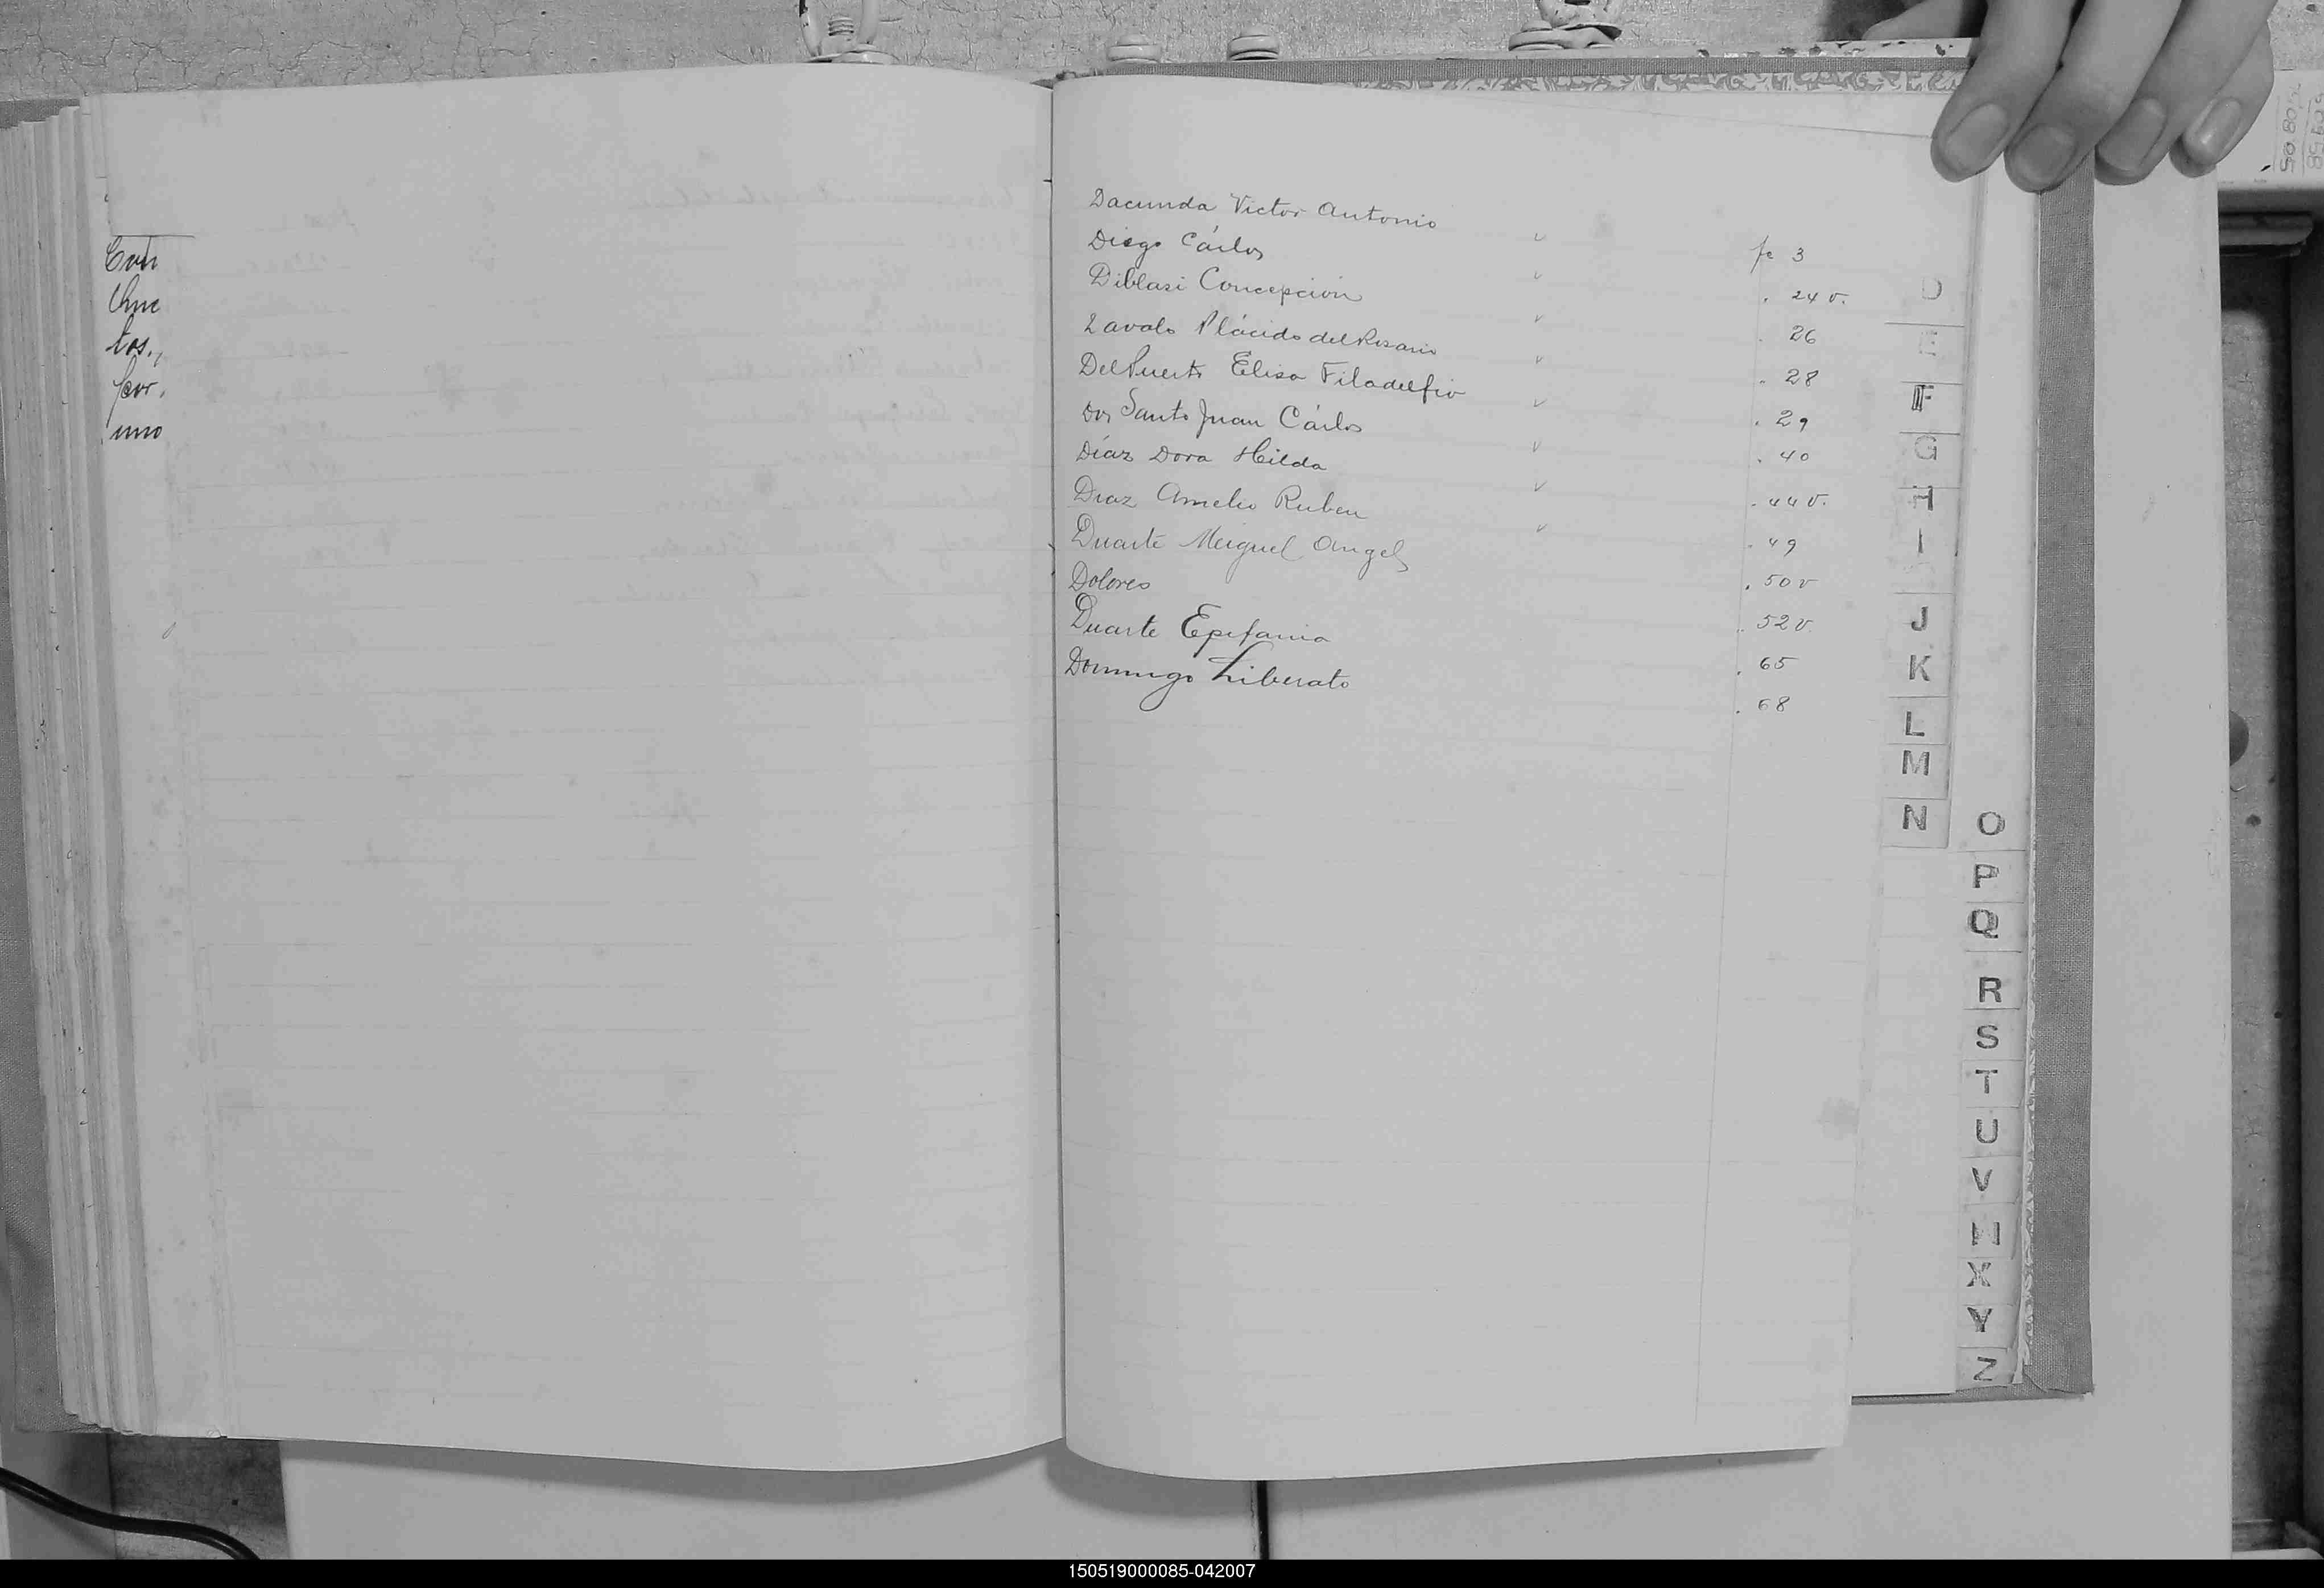 Con
tos.,
por.
uno
Dacunda Victor Antonio fs 3
Diego Cárlos . 24 v.
Diblasi Concepción . 26
Zavalo Plácido del Rosario . 28
Del Puerto Elisa Filadelfio . 29
Dos Santo Juan Cárlos . 40
Díaz Dora Hilda . 44 v.
Diaz Amelio Ruben . 49
Duarte Meiguel Angel . 50 v
Dolores . 52 v.
Duarte Epifania . 65
Domingo Liberato . 68
D
E
F
G
H
I
J
K
L
M
N
O
P
Q
R
S
T
U
V
X
Y
Z
150519000085-042007